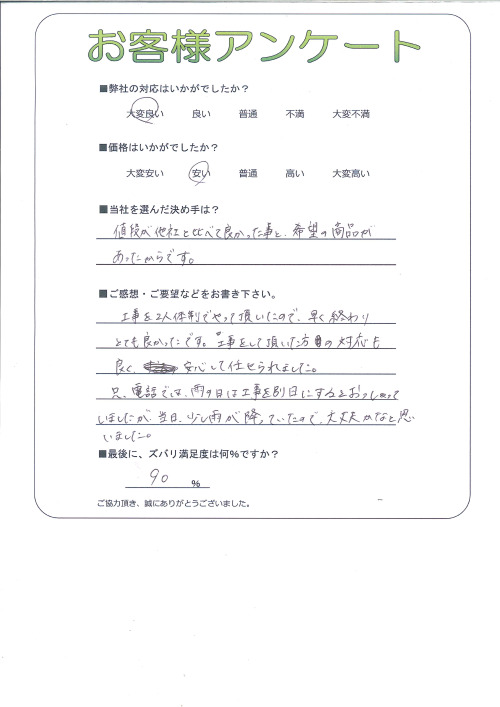 お客様アンケート
■弊社の対応はいかがでしたか？
大変良い 良い 普通 不満 大変不満
■価格はいかがでしたか？
大変安い 安い 普通 高い 大変高い
■当社を選んだ決め手は？
値段が他社と比べて良かった事と、希望の商品が
あったからです。
■ご感想・ご要望などをお書き下さい。
工事を2人体制でやって頂いたので、早く終わり
とても良かったです。工事をして頂いた方の対応も
良く、安心して任せられました。
只、電話では、雨の日は工事を別日にするとおっしゃって
いましたが、当日、少し雨が降っていたので、大丈夫かなと思
いました。
■最後に、ズバリ満足度は何%ですか？
90 %
ご協力頂き、誠にありがとうございました。